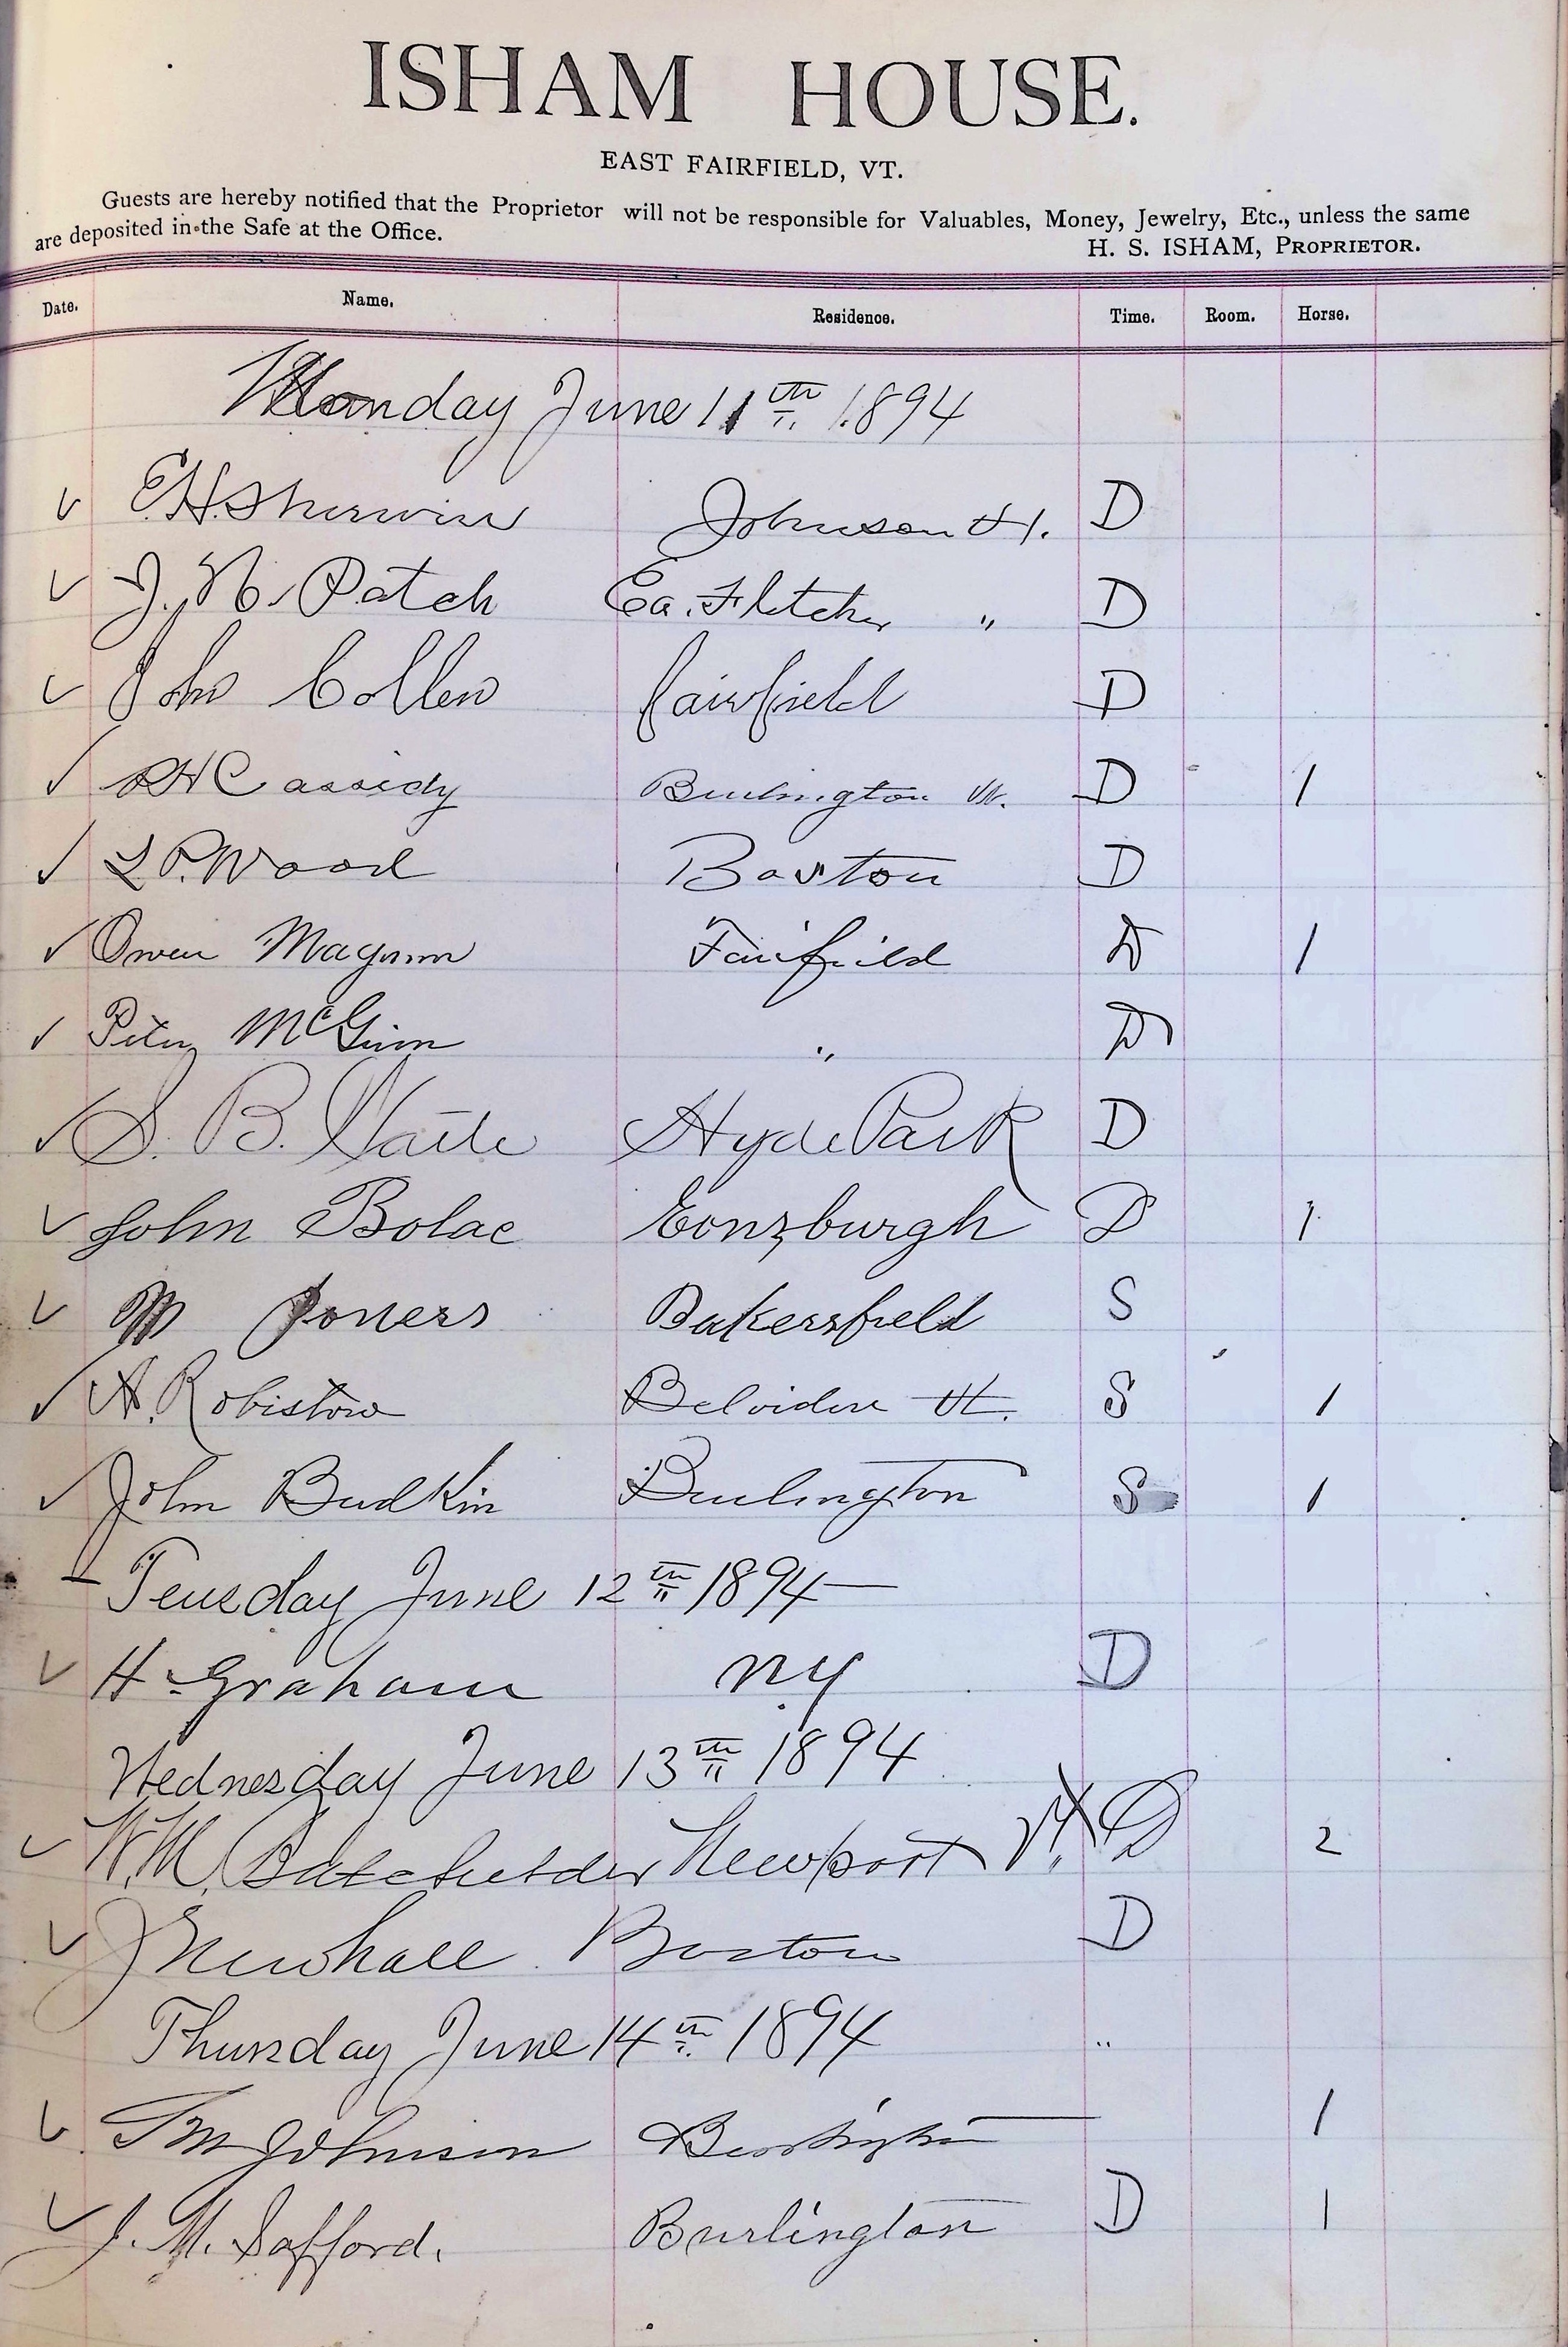 ISHAM HOUSE.
EAST FAIRFIELD, VT.
Guests are hereby notified that the Proprietor will not be responsible for Valuables, Money, Jewelry, Etc., unless the same
are deposited in the Safe at the Office.
H. S. ISHAM, PROPRIETOR.
Date. Name. Residence. Time. Room. Horse.
Monday June 11th 1894
E.H. Sherwin Johnson Vt. D
J. N. Patch Ea. Fletcher " D
John Collen fairfield D
Cassidy Burlington Vt. D 1
L P. Wood Boston D
Owen Maginn Fairfield D 1
Peter McGinn " D
S. B. Waite Hyde Park D
John Bolac Eonzburgh D 1
M Joners Bakersfield S
A. Robistow Belvidere Vt. S 1
John Budkin Burlington S 1
Teusday June 12th 1894
H Graham N.Y D
Wednesday June 13th 1894
W.M. Batchelder Newport Vt. D 2
J Newhall Boston D
Thursday June 14th 1894
Johnson 1
J. M. Safford. Burlington D 1